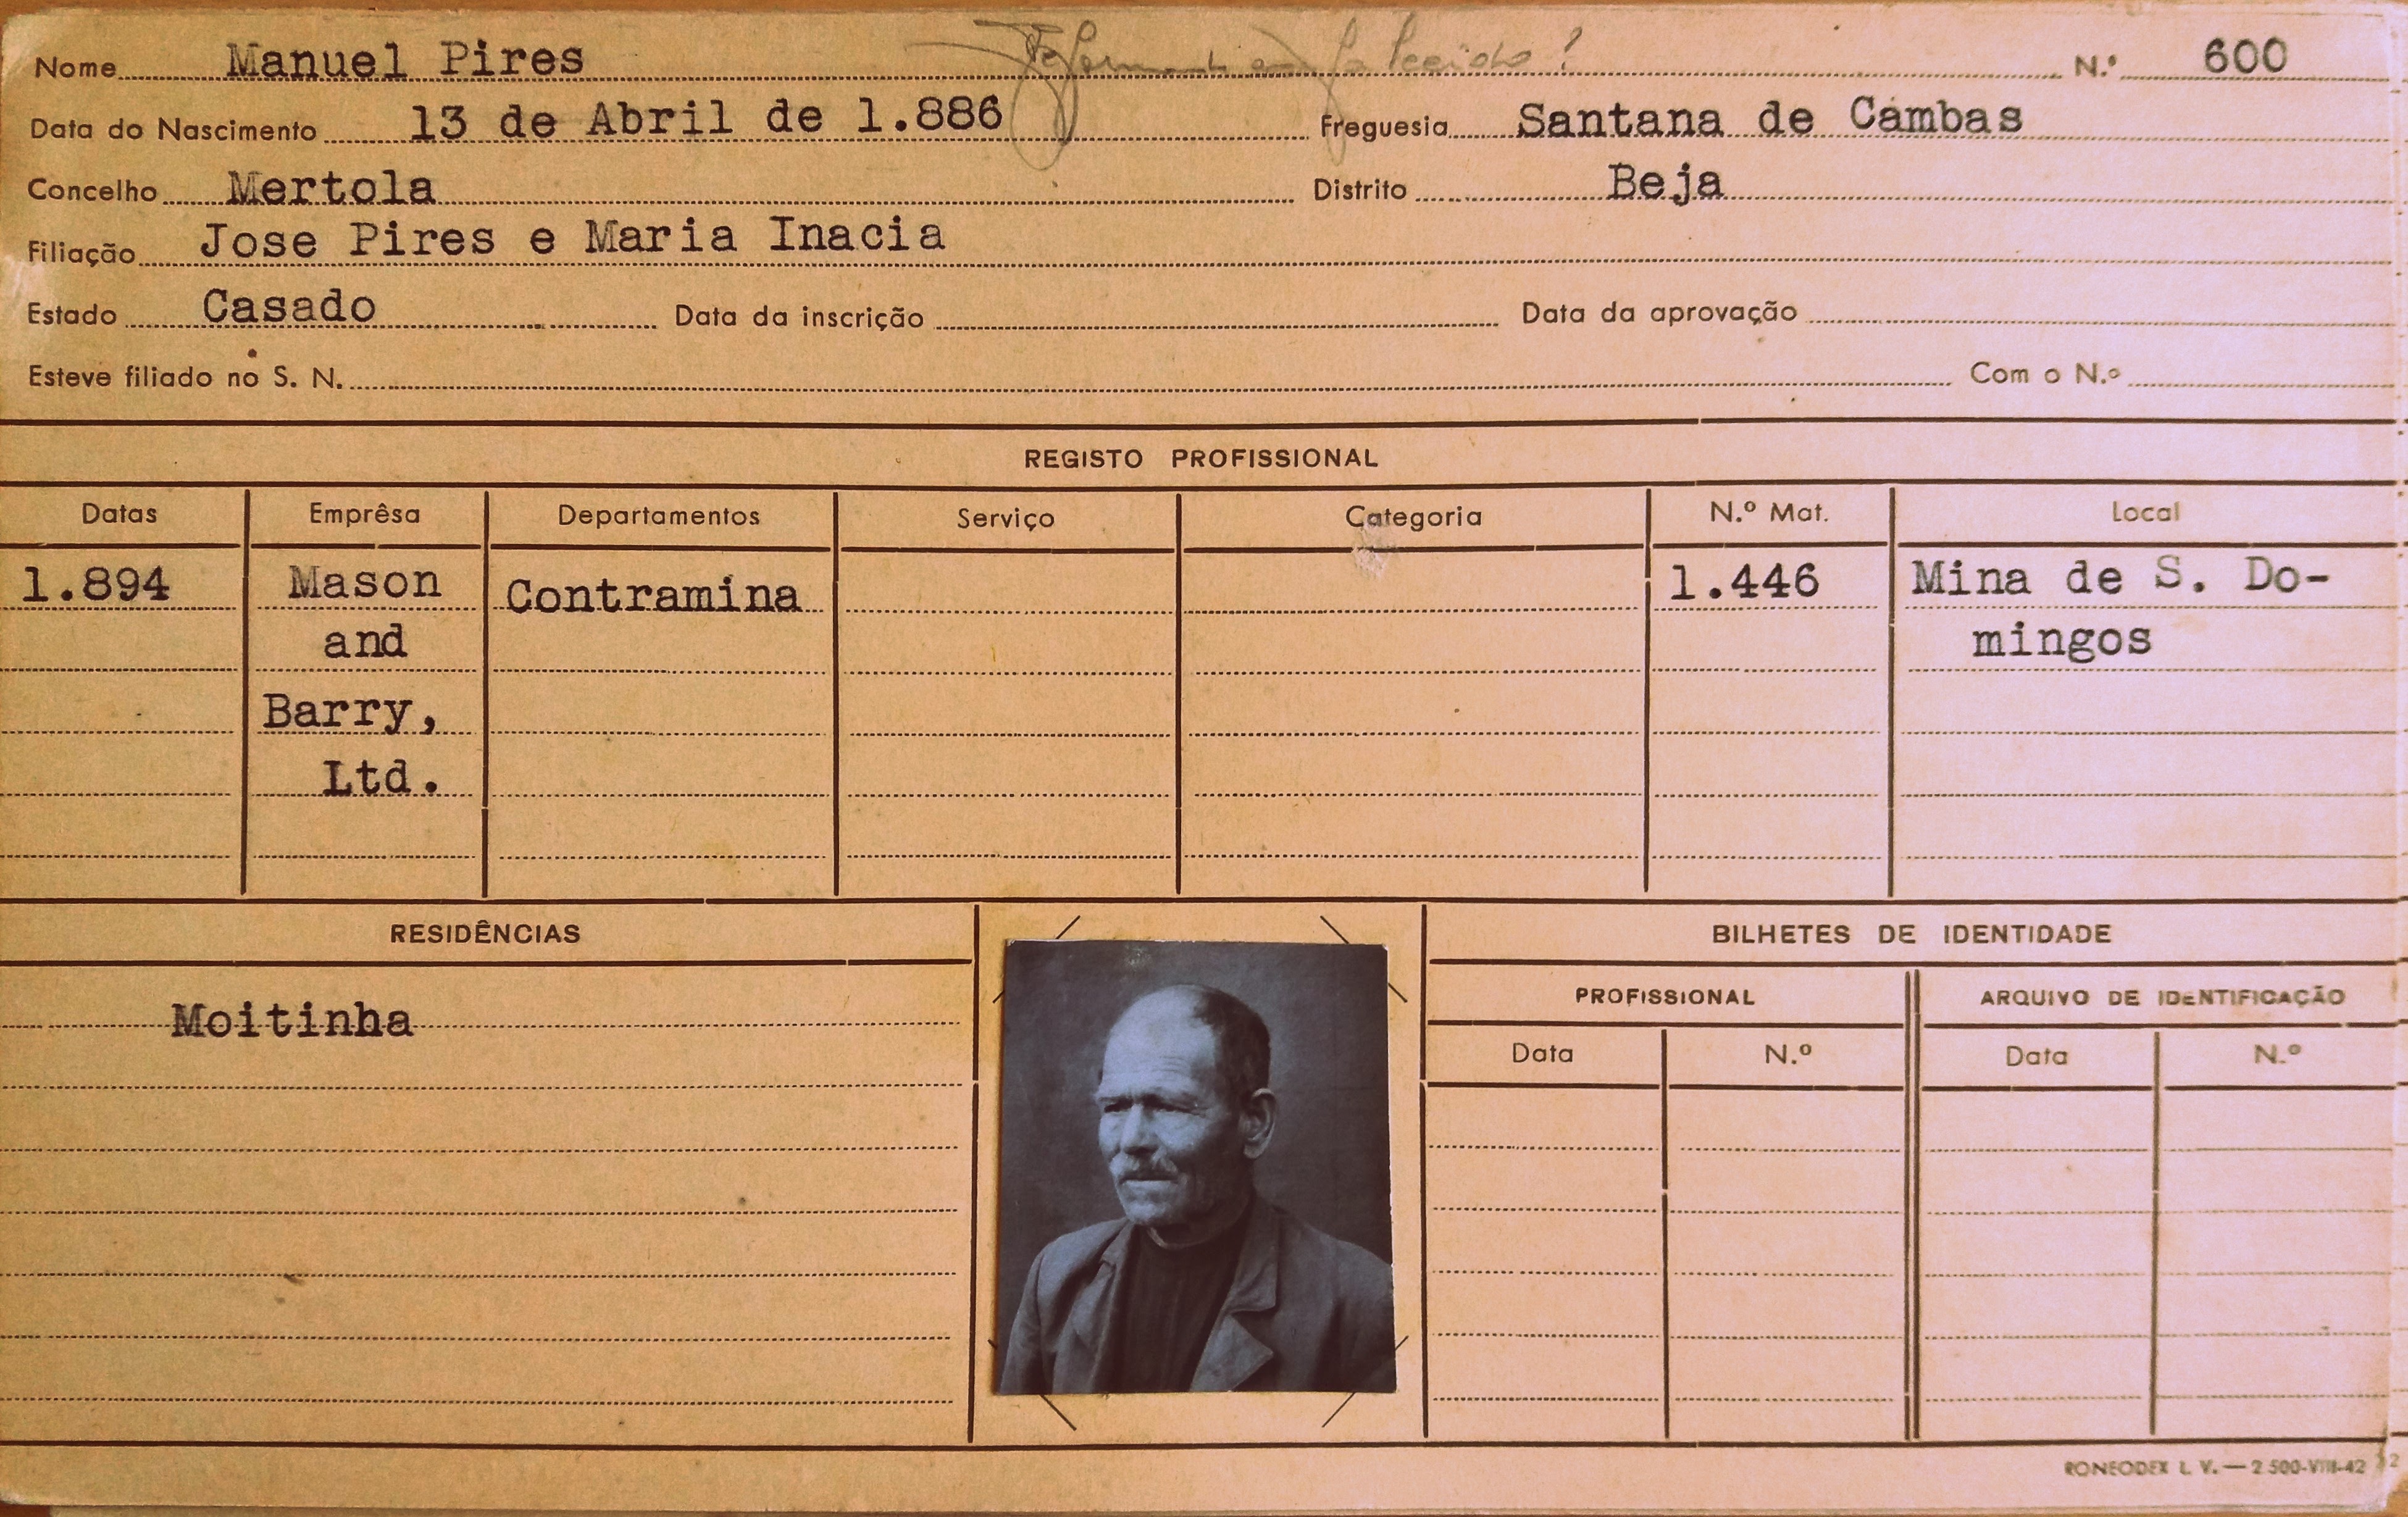 Nome Manuel Pires N.º 600
Data do Nascimento 13 de Abril de 1.886 Freguesia Santana de Cambas
Concelho Mertola Distrito Beja
Filiação Jose Pires e Maria Inacia
Estado Casado Data da inscrição Data da aprovação
Esteve filiado no S. N. Com o N.º
REGISTO PROFISSIONAL
Datas Emprêsa Departamentos Serviço Categoria N.º Mat. Local
1.894 Mason Contramina 1.446 Mina de S. Do-
and mingos
Barry,
Ltd.
RESIDÊNCIAS BILHETES DE IDENTIDADE
PROFISSIONAL ARQUIVO DE IDENTIFICAÇÃO
Moitinha
Data N.º Data N.º
RONEODEX L. V. — 2 500-VIII-42